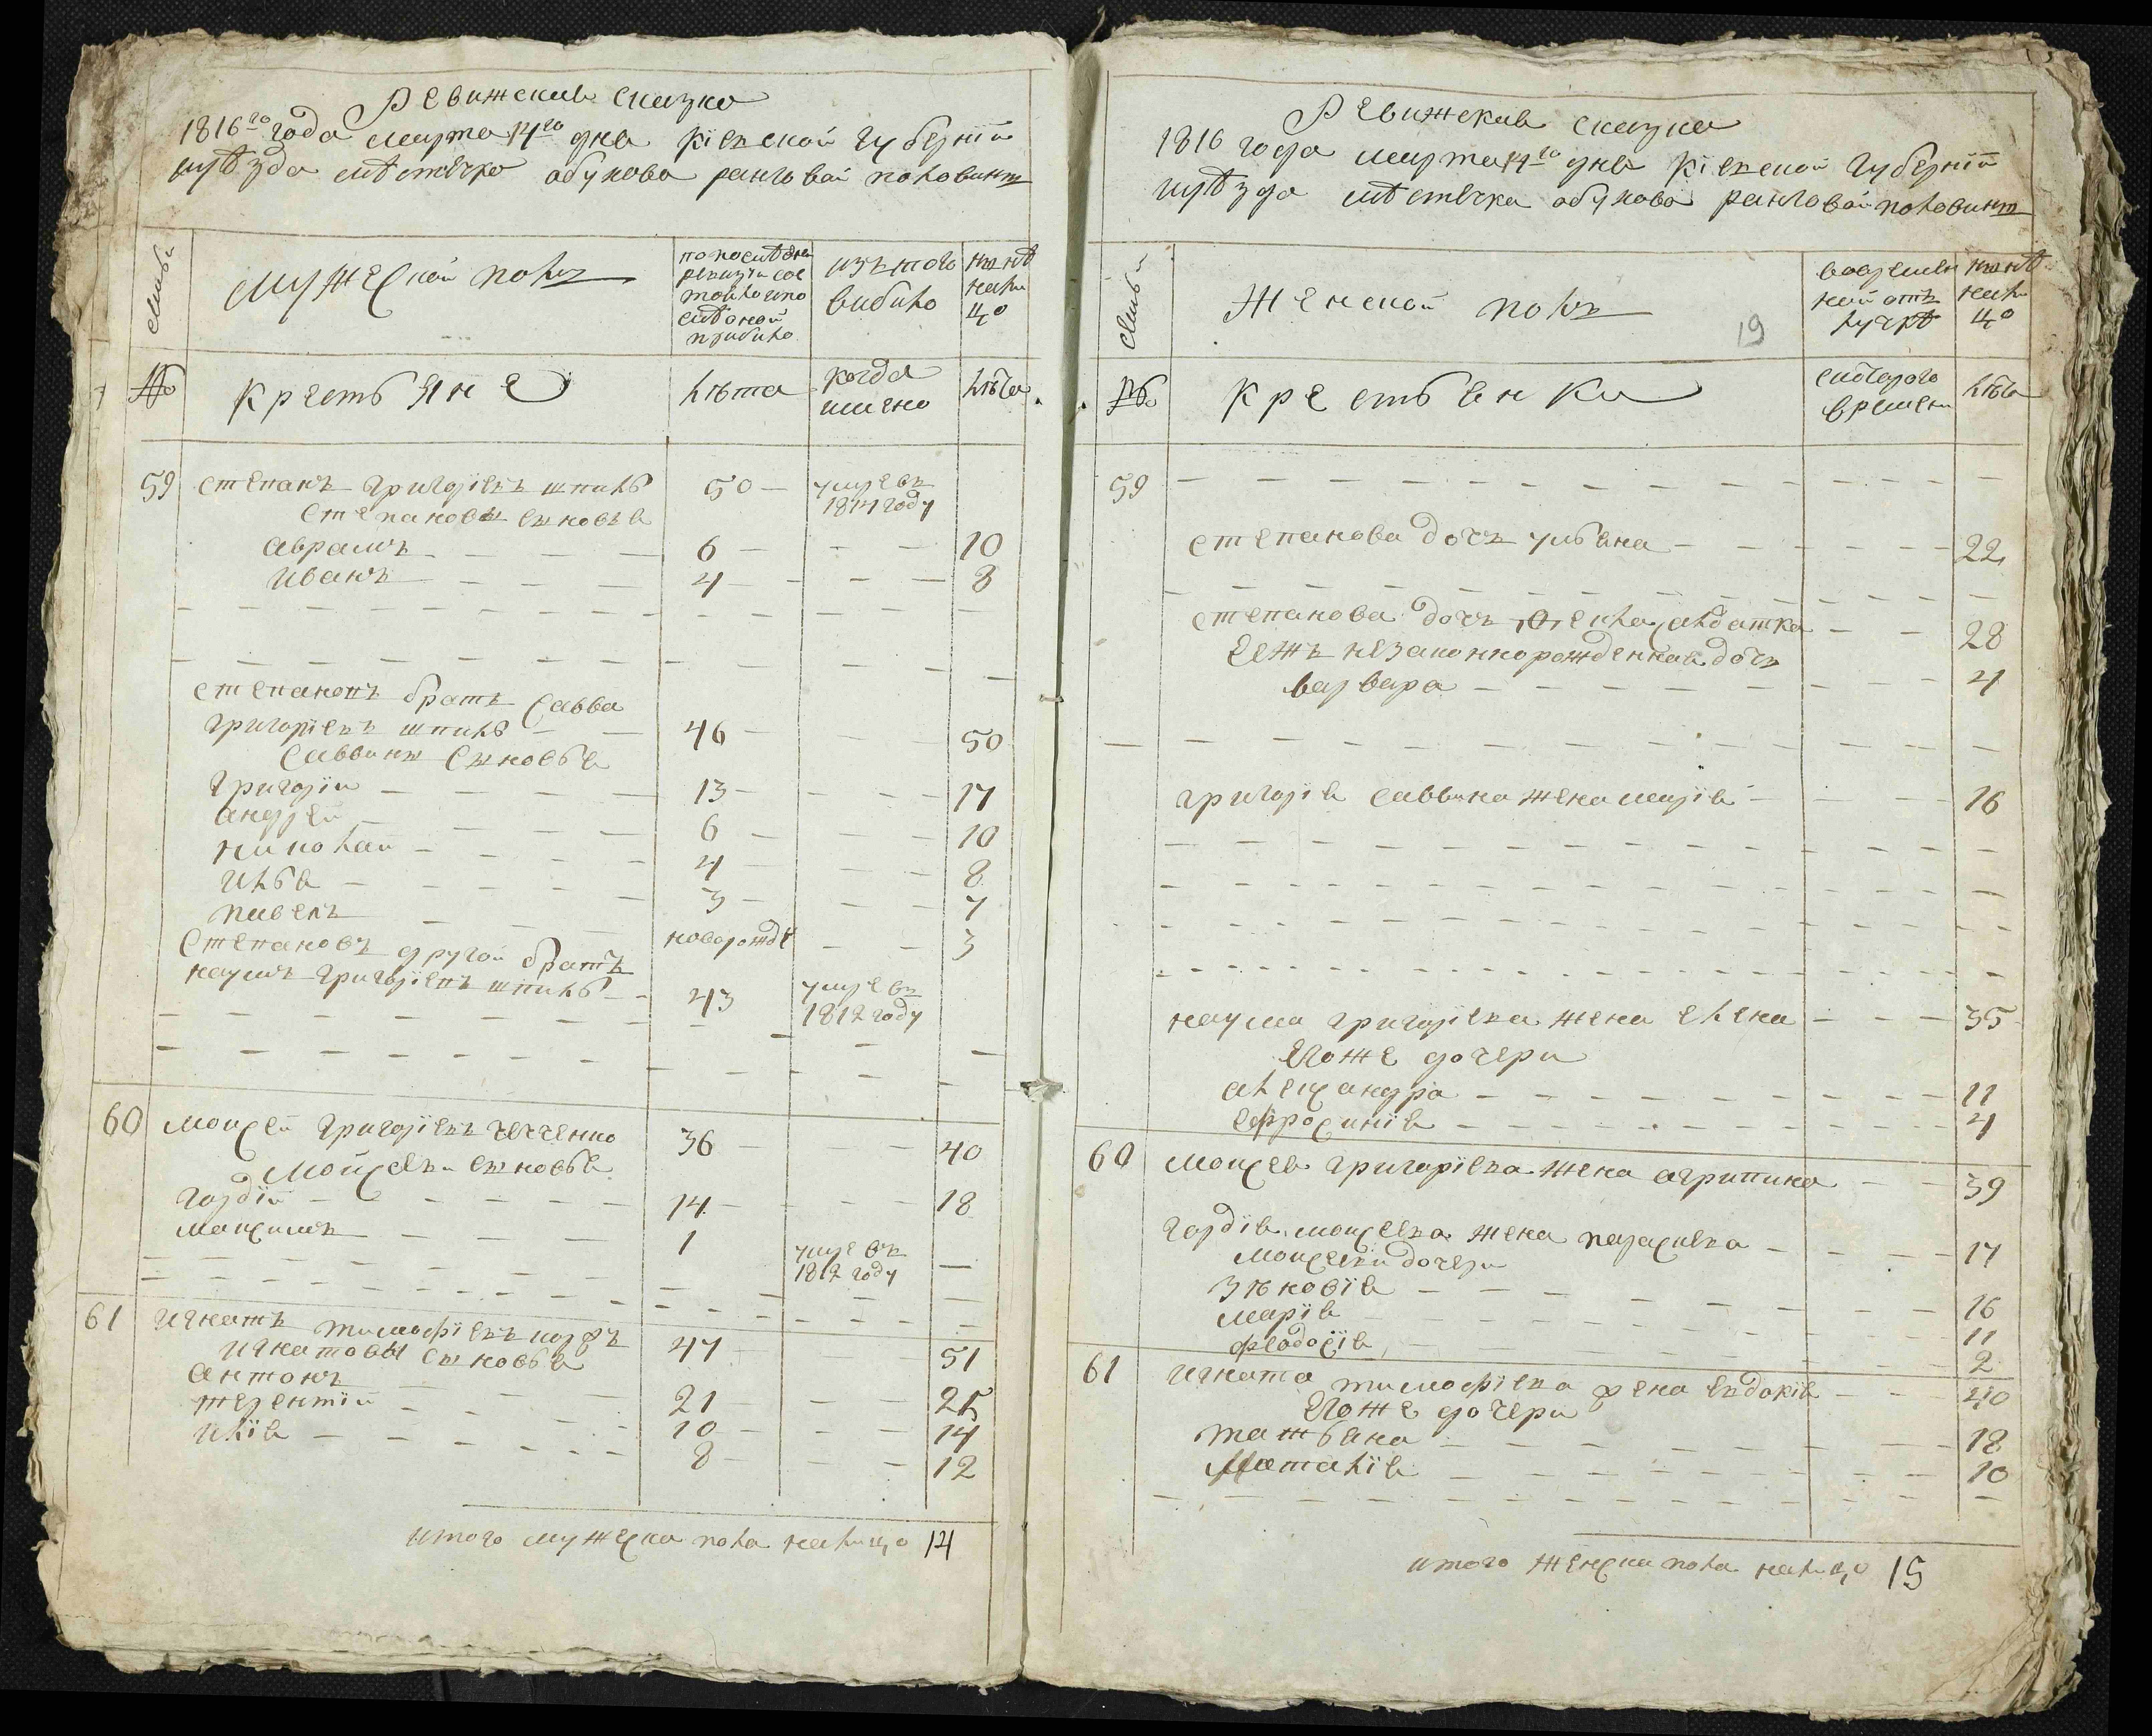 Ревижская сказка
1816го года марта 14го дня Кіевской Губерніи
уѣзда мѣстечка обухова ранговой половины
семьи
Мужеской полъ
по последней ревизіи состояло и после оной прибыло
изъ того выбыло
ныне налицо
№
Крестьяне
лѣта
когда имянно
лѣта
59 степанъ григоріевъ шпиль 50 умре въ
1814 году
степановы сыновья
аврамъ 6 10
иванъ 4 8
степановъ братъ Савва
григоріевъ шпиль 46 50
Саввины Сыновья
Григорій 13 17
андрей 6 10
николай 4 8
илья 3 7
павелъ новорожде 3
Степановъ другой братъ
наумъ григоріевъ шпиль 43 умре въ
1812 году
60 моисей григоріевъ чечченко 36 40
Моисеевы сыновья
гордій 14 18
максимъ 1 умре въ
1812 году
61 игнатъ тимофіевъ 47 51
игнатовы сыновья
антонъ 21 25
терентій 10 14
илія 8 12
итого мужеска пола налицо 14
Ревижская сказка
1816 года марта 14го дня Кіевской Губерніи
уѣзда мѣстечка обухова ранговой половины
19
семьи
Женской полъ
во временной отлучке
ныне налицо
№
Крестьянки
с которого времени
лѣта
59
степанова дочъ ульяна 22
степанова дочъ салдатка 28
Еежъ незаконнорожденная дочъ
варвара 4
григорія саввина жена марія 16
наума григоріева жена елена 35
Егоже дочери
александра 11
ефросинія 4
60 моисея григоріева жена агрипина 39
гордія моисеева жена параскева 17
моисеевы дочери
зѣновія 16
марія 11
феодосія 2
61 игната тимофіева жена евдокія 40
Егоже дочери
татьяна 18
Наталія 10
итого женска пола налицо 15